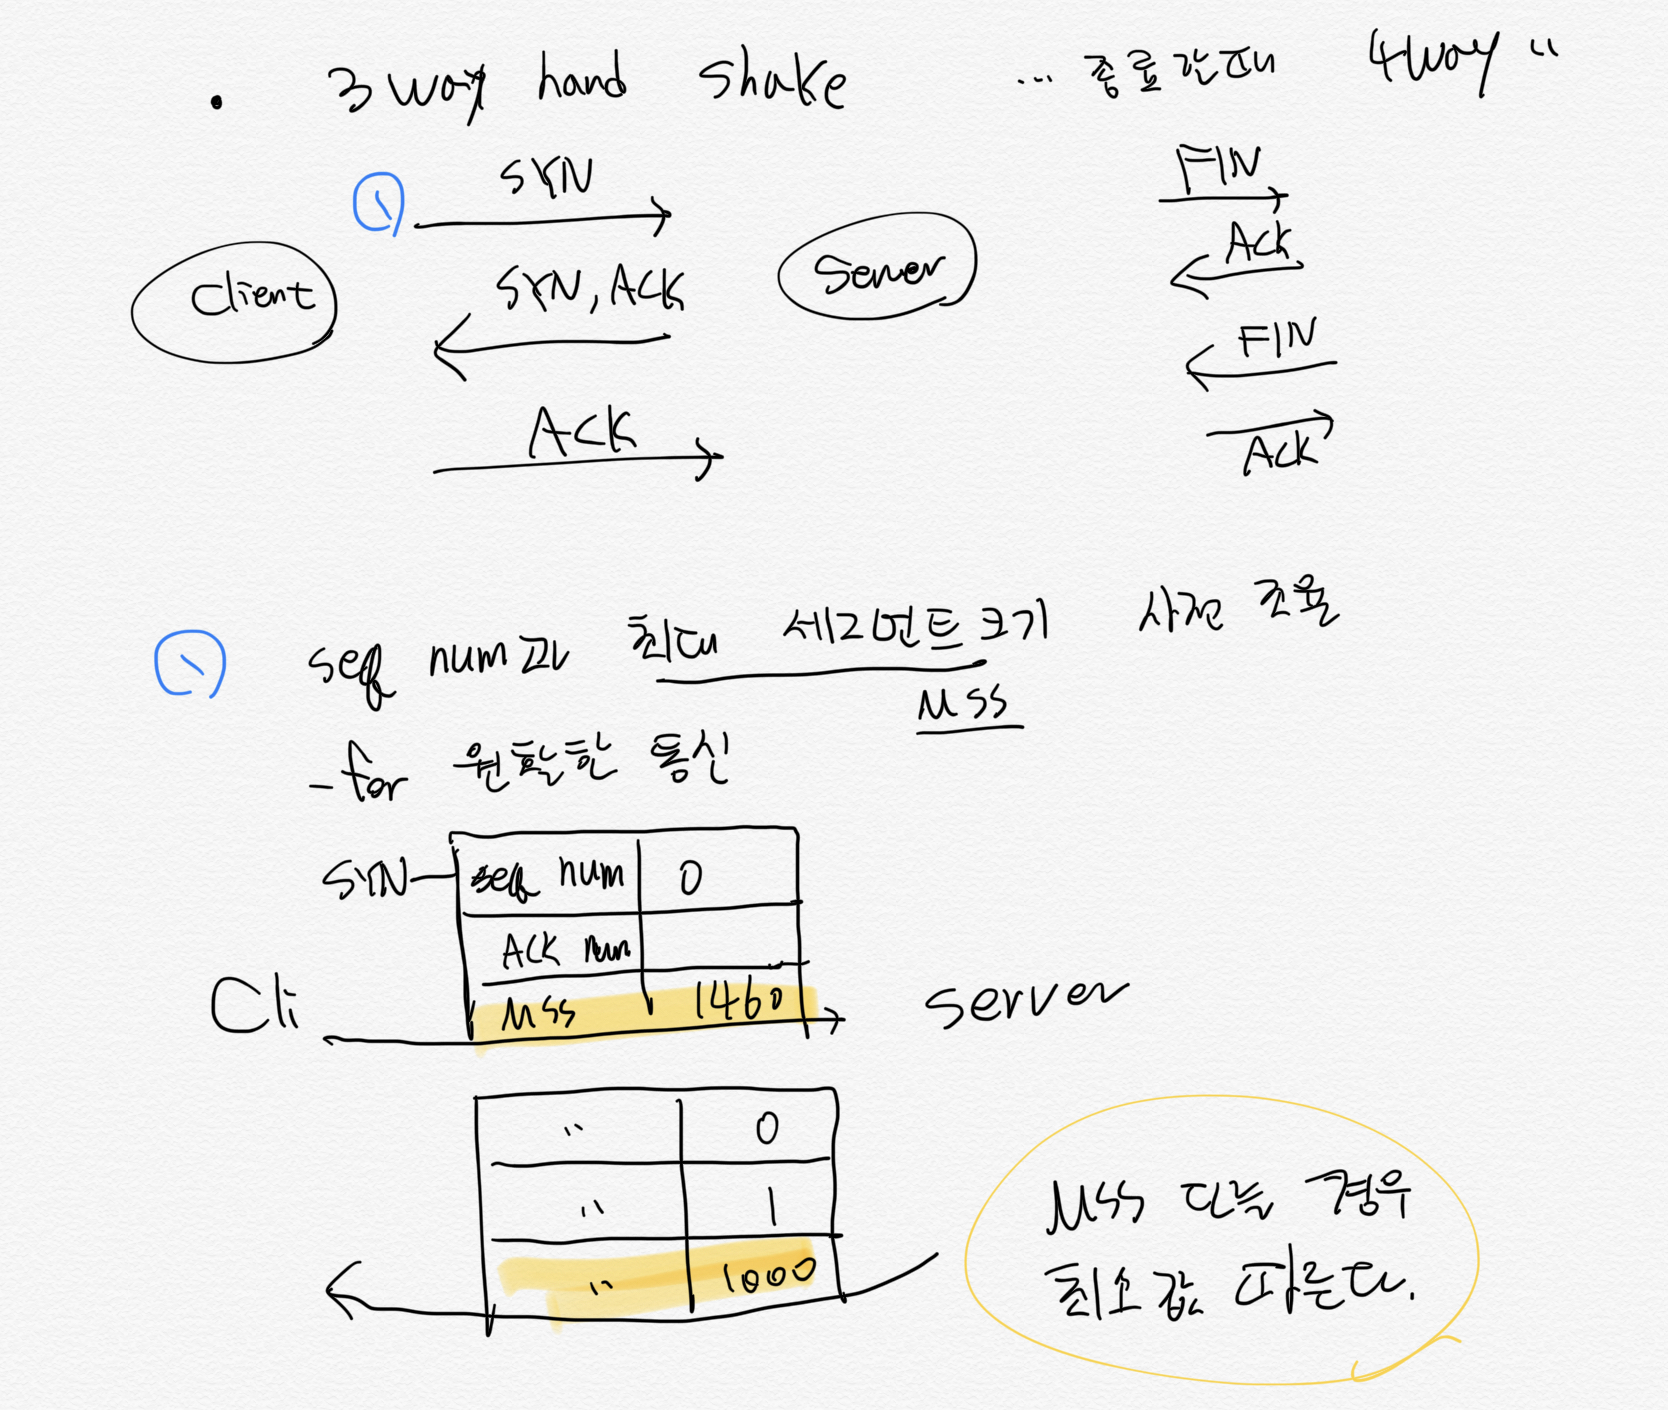 · 3 way hand shake ... 종료할때 4way "
① SYN
Client
SYN, ACK
Server
ACK
FIN
Ack
FIN
Ack
① seq num과 최대 세그먼트 크기 사전 조율
MSS
- for 원활한 통신
SYN seq num 0
ACK num
MSS 1460
Cli server
" 0
" 1
" 1000
MSS 다를 경우
최소값 따른다.